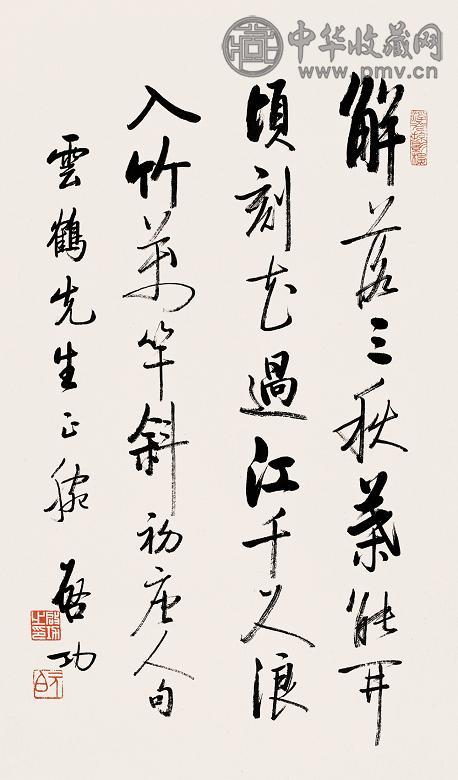 中华收藏网
www.pmv.cn
解落三秋葉能開
頃刻花過江千尺浪
入竹萬竿斜初唐人句
雲鶴先生正腕 啓功